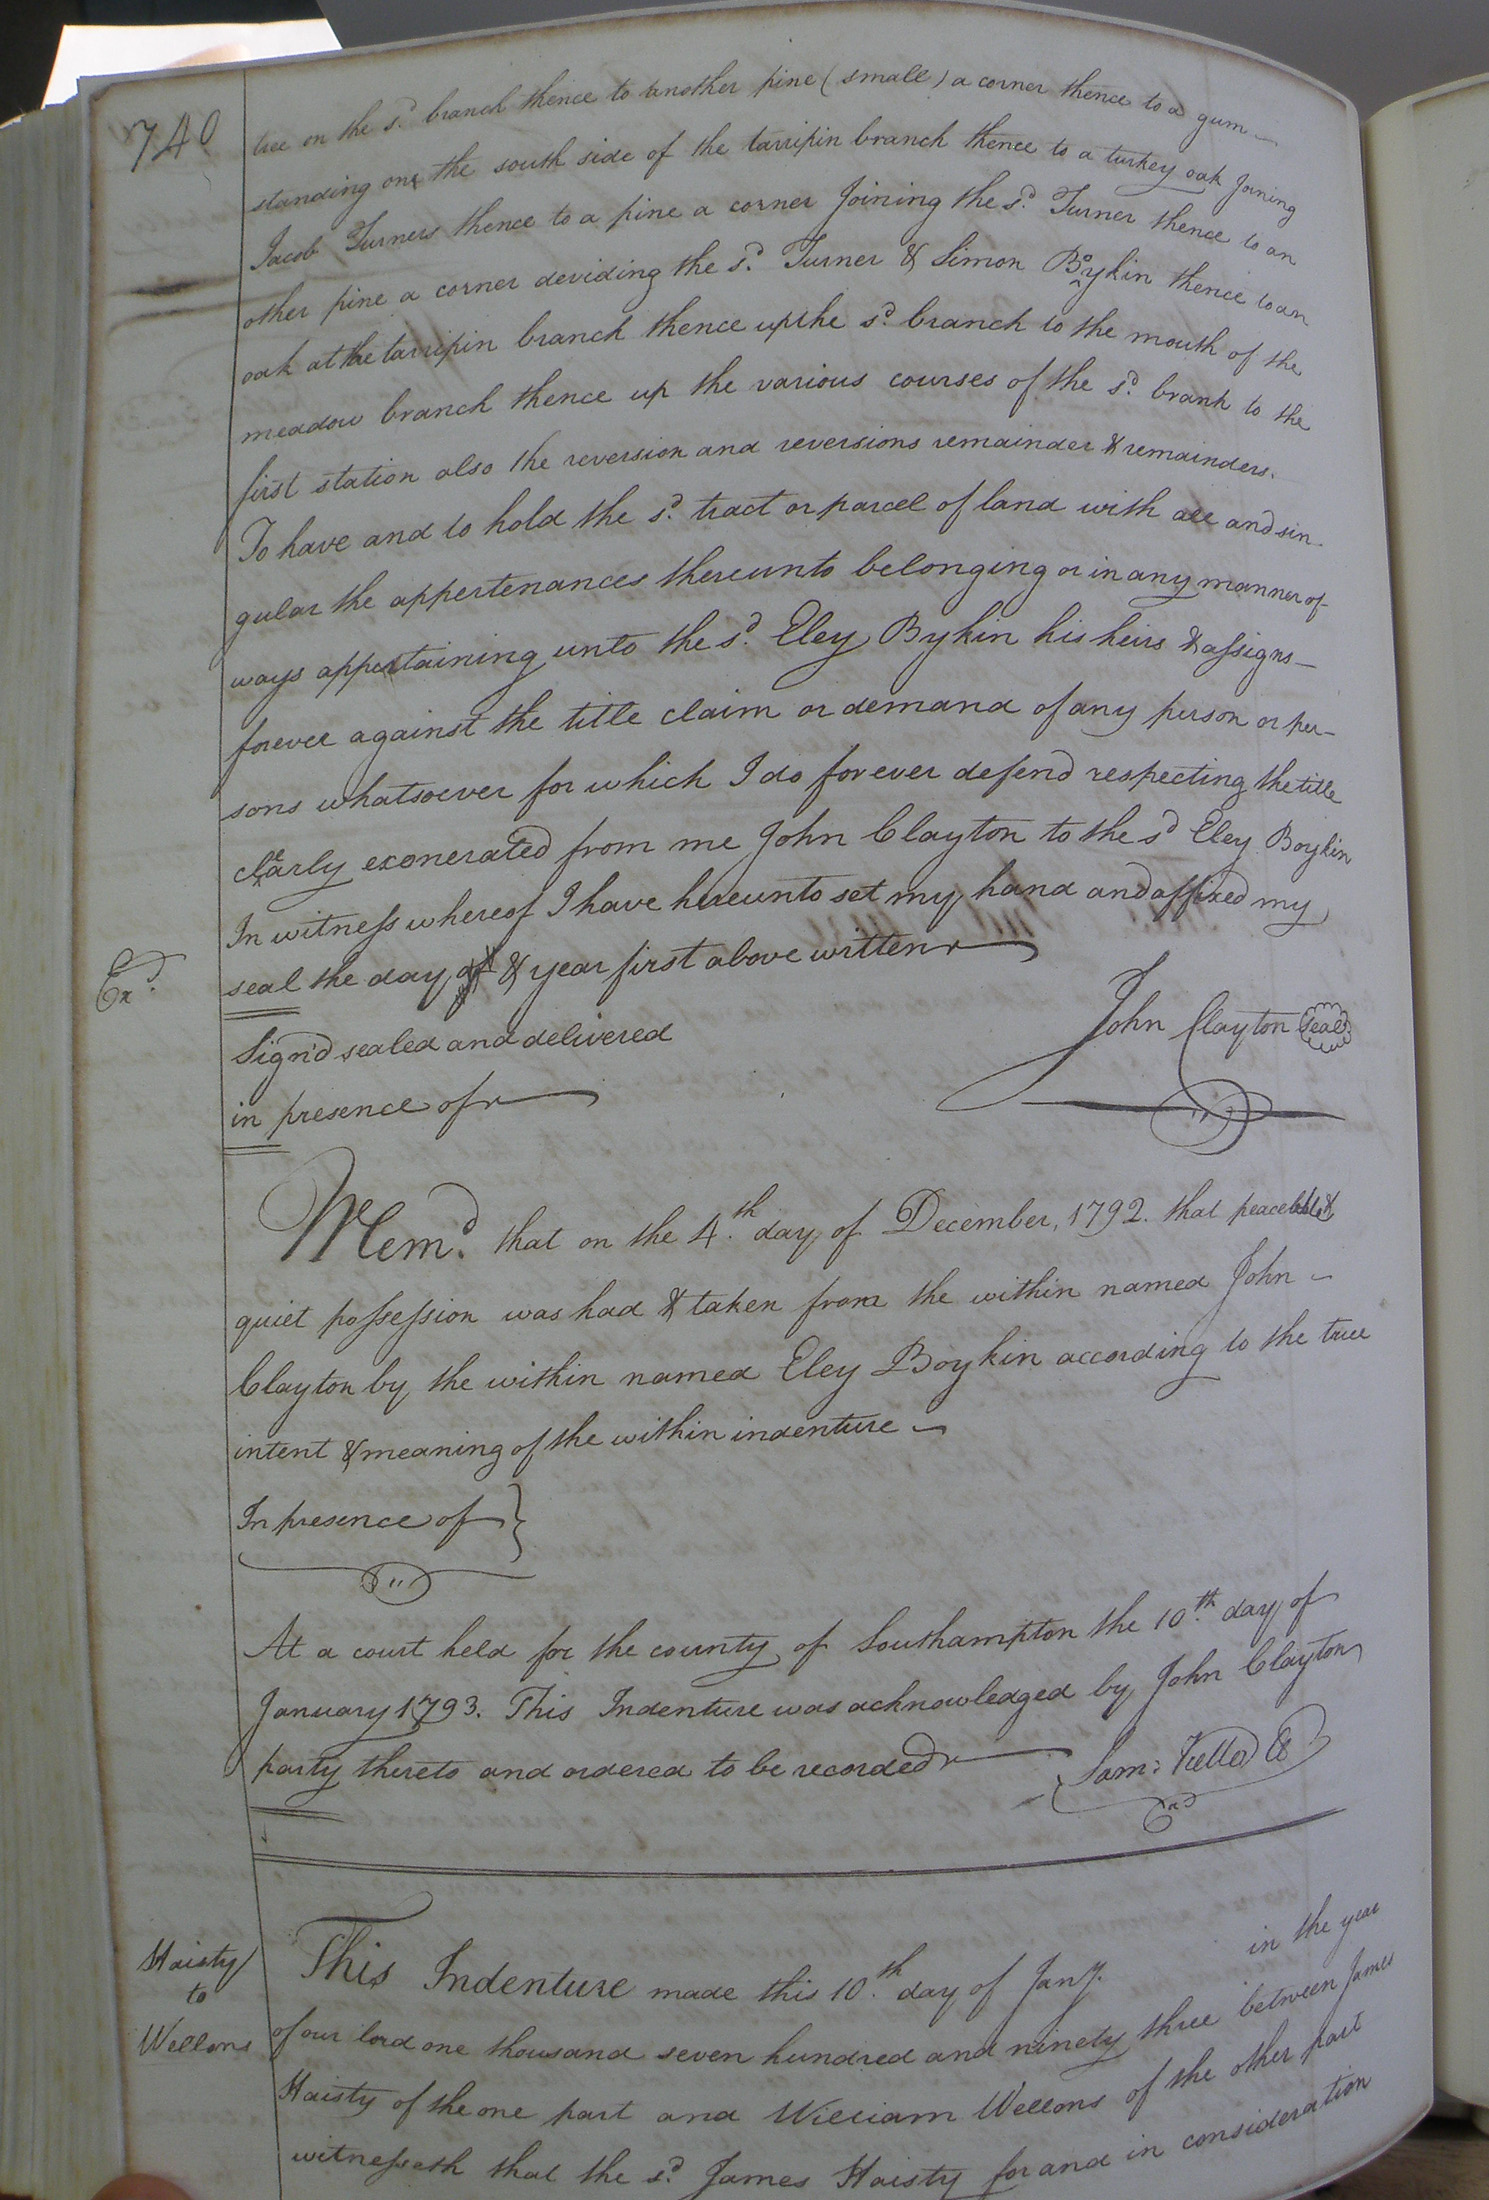 740
tree on the sd. branch thence to another pine (small) a corner thence to a gum
standing on the south side of the tarripin branch thence to a turkey oak Joining
Jacob Turners thence to a pine a corner Joining the sd. Turner thence to an
other pine a corner deviding the sd. Turner & Simon Boykin thence to an
oak at the tarripin branch thence up the sd. branch to the mouth of the
meadow branch thence up the various courses of the sd. brank to the
first station also the reversion and reversions remainder & remainders.
To have and to hold the sd. tract or parcel of land with all and sin-
gular the appertenances thereunto belonging or in any manner of
ways appertaining unto the sd. Eley Bykin his heirs & assigns
forever against the title claim or demand of any person or per-
sons whatsoever for which I do for ever defend respecting the title
clearly exonerated from me John Clayton to the sd Eley Boykin
In witness whereof I have hereunto set my hand and affixed my
Exd.
seal the day & year first above written
Sign'd sealed and delivered
John Clayton Seal
in presence of
Memd. that on the 4th. day of December, 1792. that peaceable &
quiet possession was had & taken from the within named John
Clayton by the within named Eley Boykin according to the true
intent & meaning of the within indenture
In presence of
At a court held for the county of Southampton the 10th. day of
January 1793. This Indenture was acknowledged by John Clayton
party thereto and ordered to be recorded
Sam: Kello Cl
Exd
Haisty
to
Wellons
This Indenture made this 10th. day of Jany. in the year
of our lord one thousand seven hundred and ninety three between James
Haisty of the one part and William Wellons of the other part
witnesseth that the sd. James Haisty for and in consideration